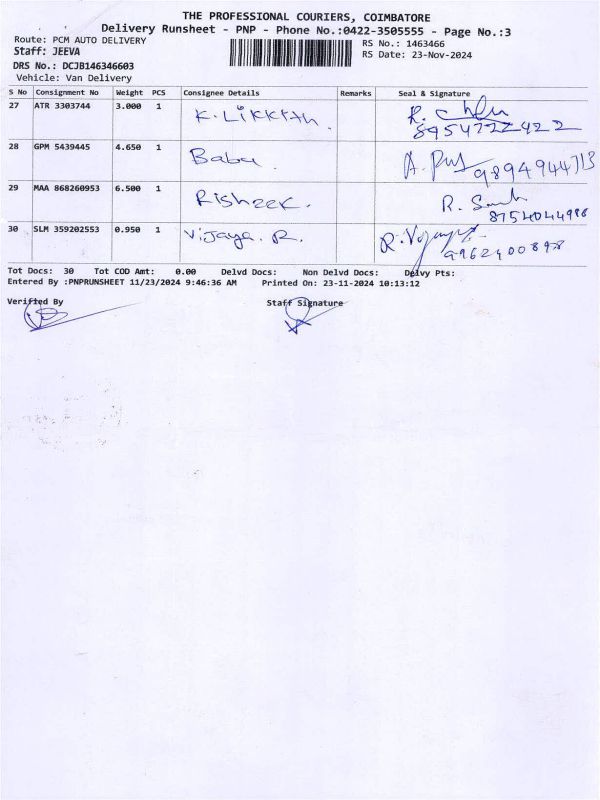 THE PROFESSIONAL COURIERS, COIMBATORE
Delivery Runsheet - PNP - Phone No.:0422-3505555 - Page No.:3
Route: PCM AUTO DELIVERY
RS No.: 1463466
Staff: JEEVA
RS Date: 23-Nov-2024
DRS No.: DCJB146346603
Vehicle: Van Delivery
S No Consignment No Weight PCS Consignee Details Remarks Seal & Signature
27 ATR 3303744 3.000 1 K. Likkth. R.
8954722422
28 GPM 5439445 4.650 1 Babu A. 9894944713
29 MAA 868260953 6.500 1 Risheek. R.
8754044998
30 SLM 359202553 0.950 1 Vijaya. R. R. Vijaya
9962400898
Tot Docs: 30 Tot COD Amt: 0.00 Delvd Docs: Non Delvd Docs: Delvy Pts:
Entered By :PNPRUNSHEET 11/23/2024 9:46:36 AM Printed On: 23-11-2024 10:13:12
Verified By Staff Signature